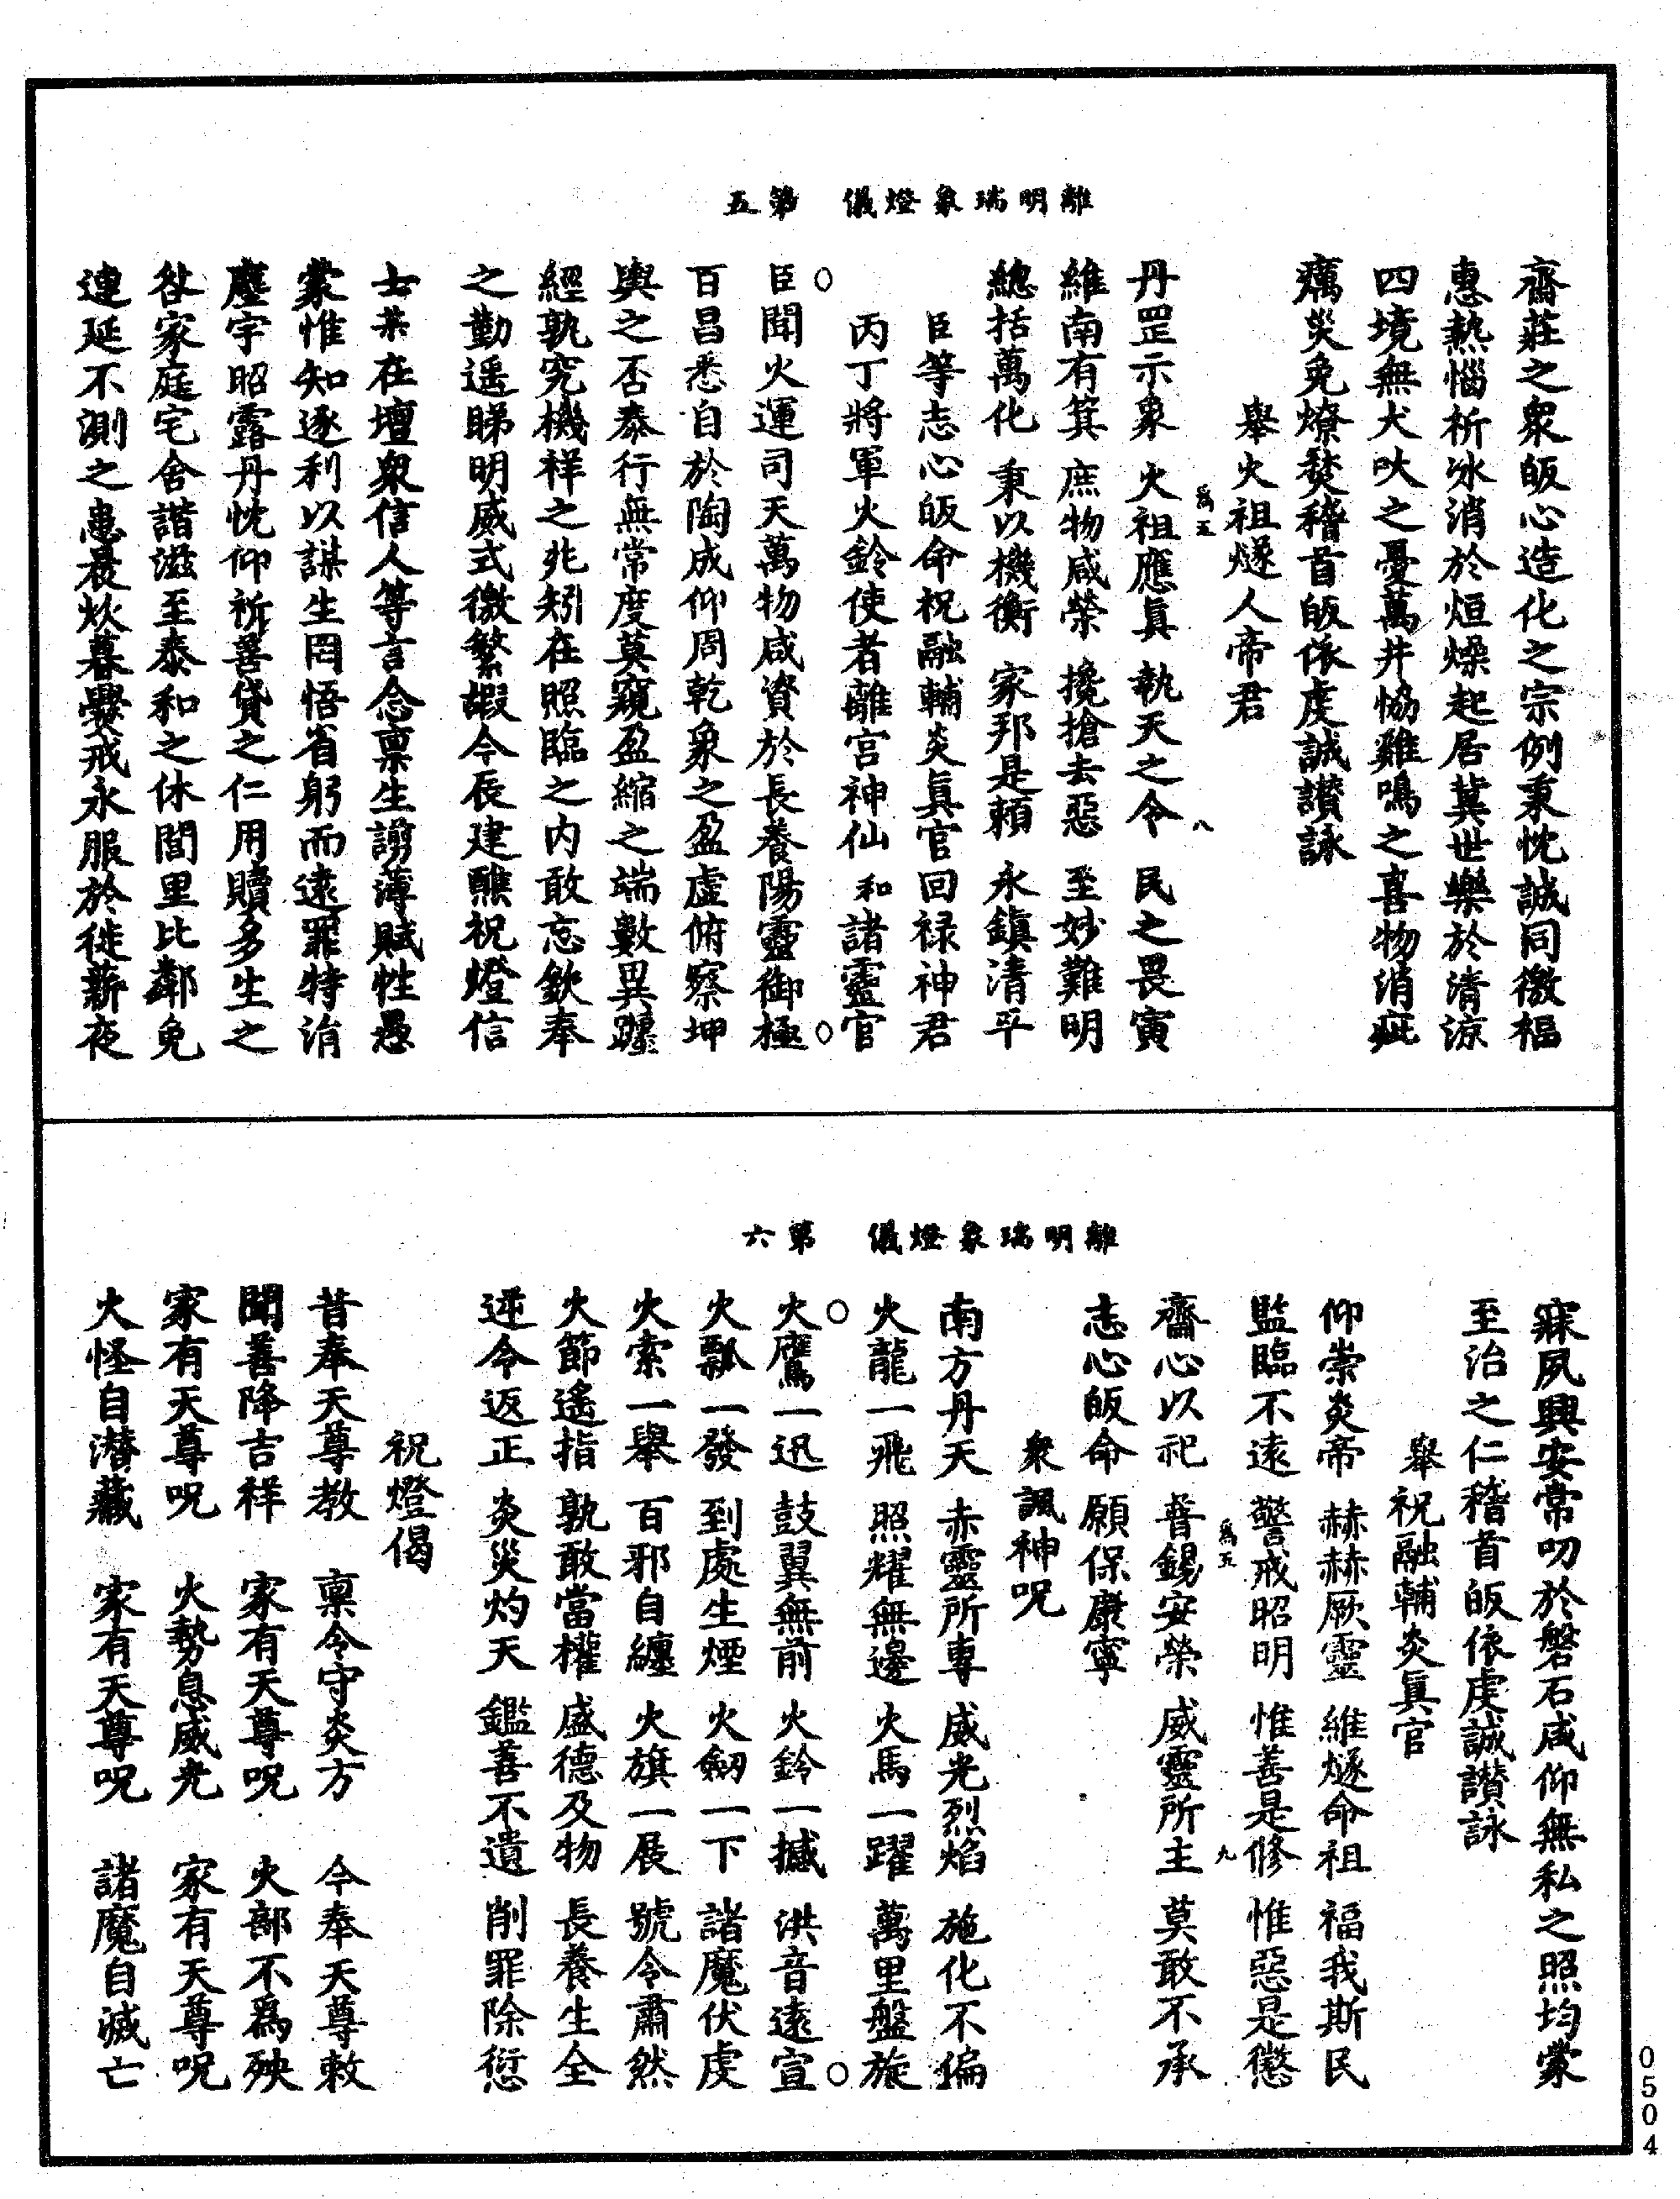 離明瑞象燈儀　第五
齋莊之衆皈心造化之宗例秉忱誠同徼福
惠熱惱祈冰消於烜燥起居冀世樂於清涼
四境無犬吠之憂萬井協雞鳴之喜物消疵
癘災免燎㷊稽首皈依虔誠讃詠
舉火祖燧人帝君
丹罡示象　火祖應眞　執天之令　民之畏寅
維南有箕　庶物咸榮　攙搶去惡　至妙難明
總括萬化　秉以機衡　家邦是賴　永鎮清平
臣等志心皈命祝融輔炎眞官回祿神君
丙丁將軍火鈴使者離宫神仙和諸靈官
臣聞火運司天萬物咸資於長養陽靈御極
百昌悉自於陶成仰周乾象之盈虛俯察坤
輿之否泰行無常度莫窺盈縮之端數異躔
經孰究機祥之兆矧在照臨之内敢忘欽奉
之勤遥睇明威式徼繁嘏今辰建醮祝燈信
士某在壇衆信人等言念禀生譾薄賦性愚
蒙惟知逐利以謀生罔悟省躬而遠罪特涓
塵宇昭露丹忱仰祈善貸之仁用贖多生之
咎家庭宅舍諧滋至泰和之休閭里比鄰免
連延不測之患晨炊暮爨戒永服於徙薪夜
爲五
八
離明瑞象燈儀　第六
寐夙興安常叨於磐石咸仰無私之照均蒙
至治之仁稽首皈依虔誠讃詠
舉祝融輔炎眞官
仰崇炎帝　赫赫厥靈　維燧命祖　福我斯民
監臨不遠　警戒昭明　惟善是修　惟惡是懲
齋心以祀　普錫安榮　威靈所主　莫敢不承
志心皈命　願保康寧
衆諷神呪
南方丹天　赤靈所專　威光烈焰　施化不偏
火龍一飛　照耀無邊　火馬一躍　萬里盤旋
火鷹一迅　鼓翼無前　火鈴一撼　洪音遠宣
火瓢一發　到處生煙　火劒一下　諸魔伏虔
火索一舉　百邪自纏　火旗一展　號令肅然
火節遙指　孰敢當權　盛德及物　長養生全
逆令返正　炎災灼天　鑑善不遺　削罪除愆
祝燈偈
昔奉天尊教　禀令守炎方　今奉天尊敕
聞善降吉祥　家有天尊呪　火部不爲殃
家有天尊呪　火勢息威光　家有天尊呪
火怪自潜藏　家有天尊呪　諸魔自滅亡
爲五
九
0504